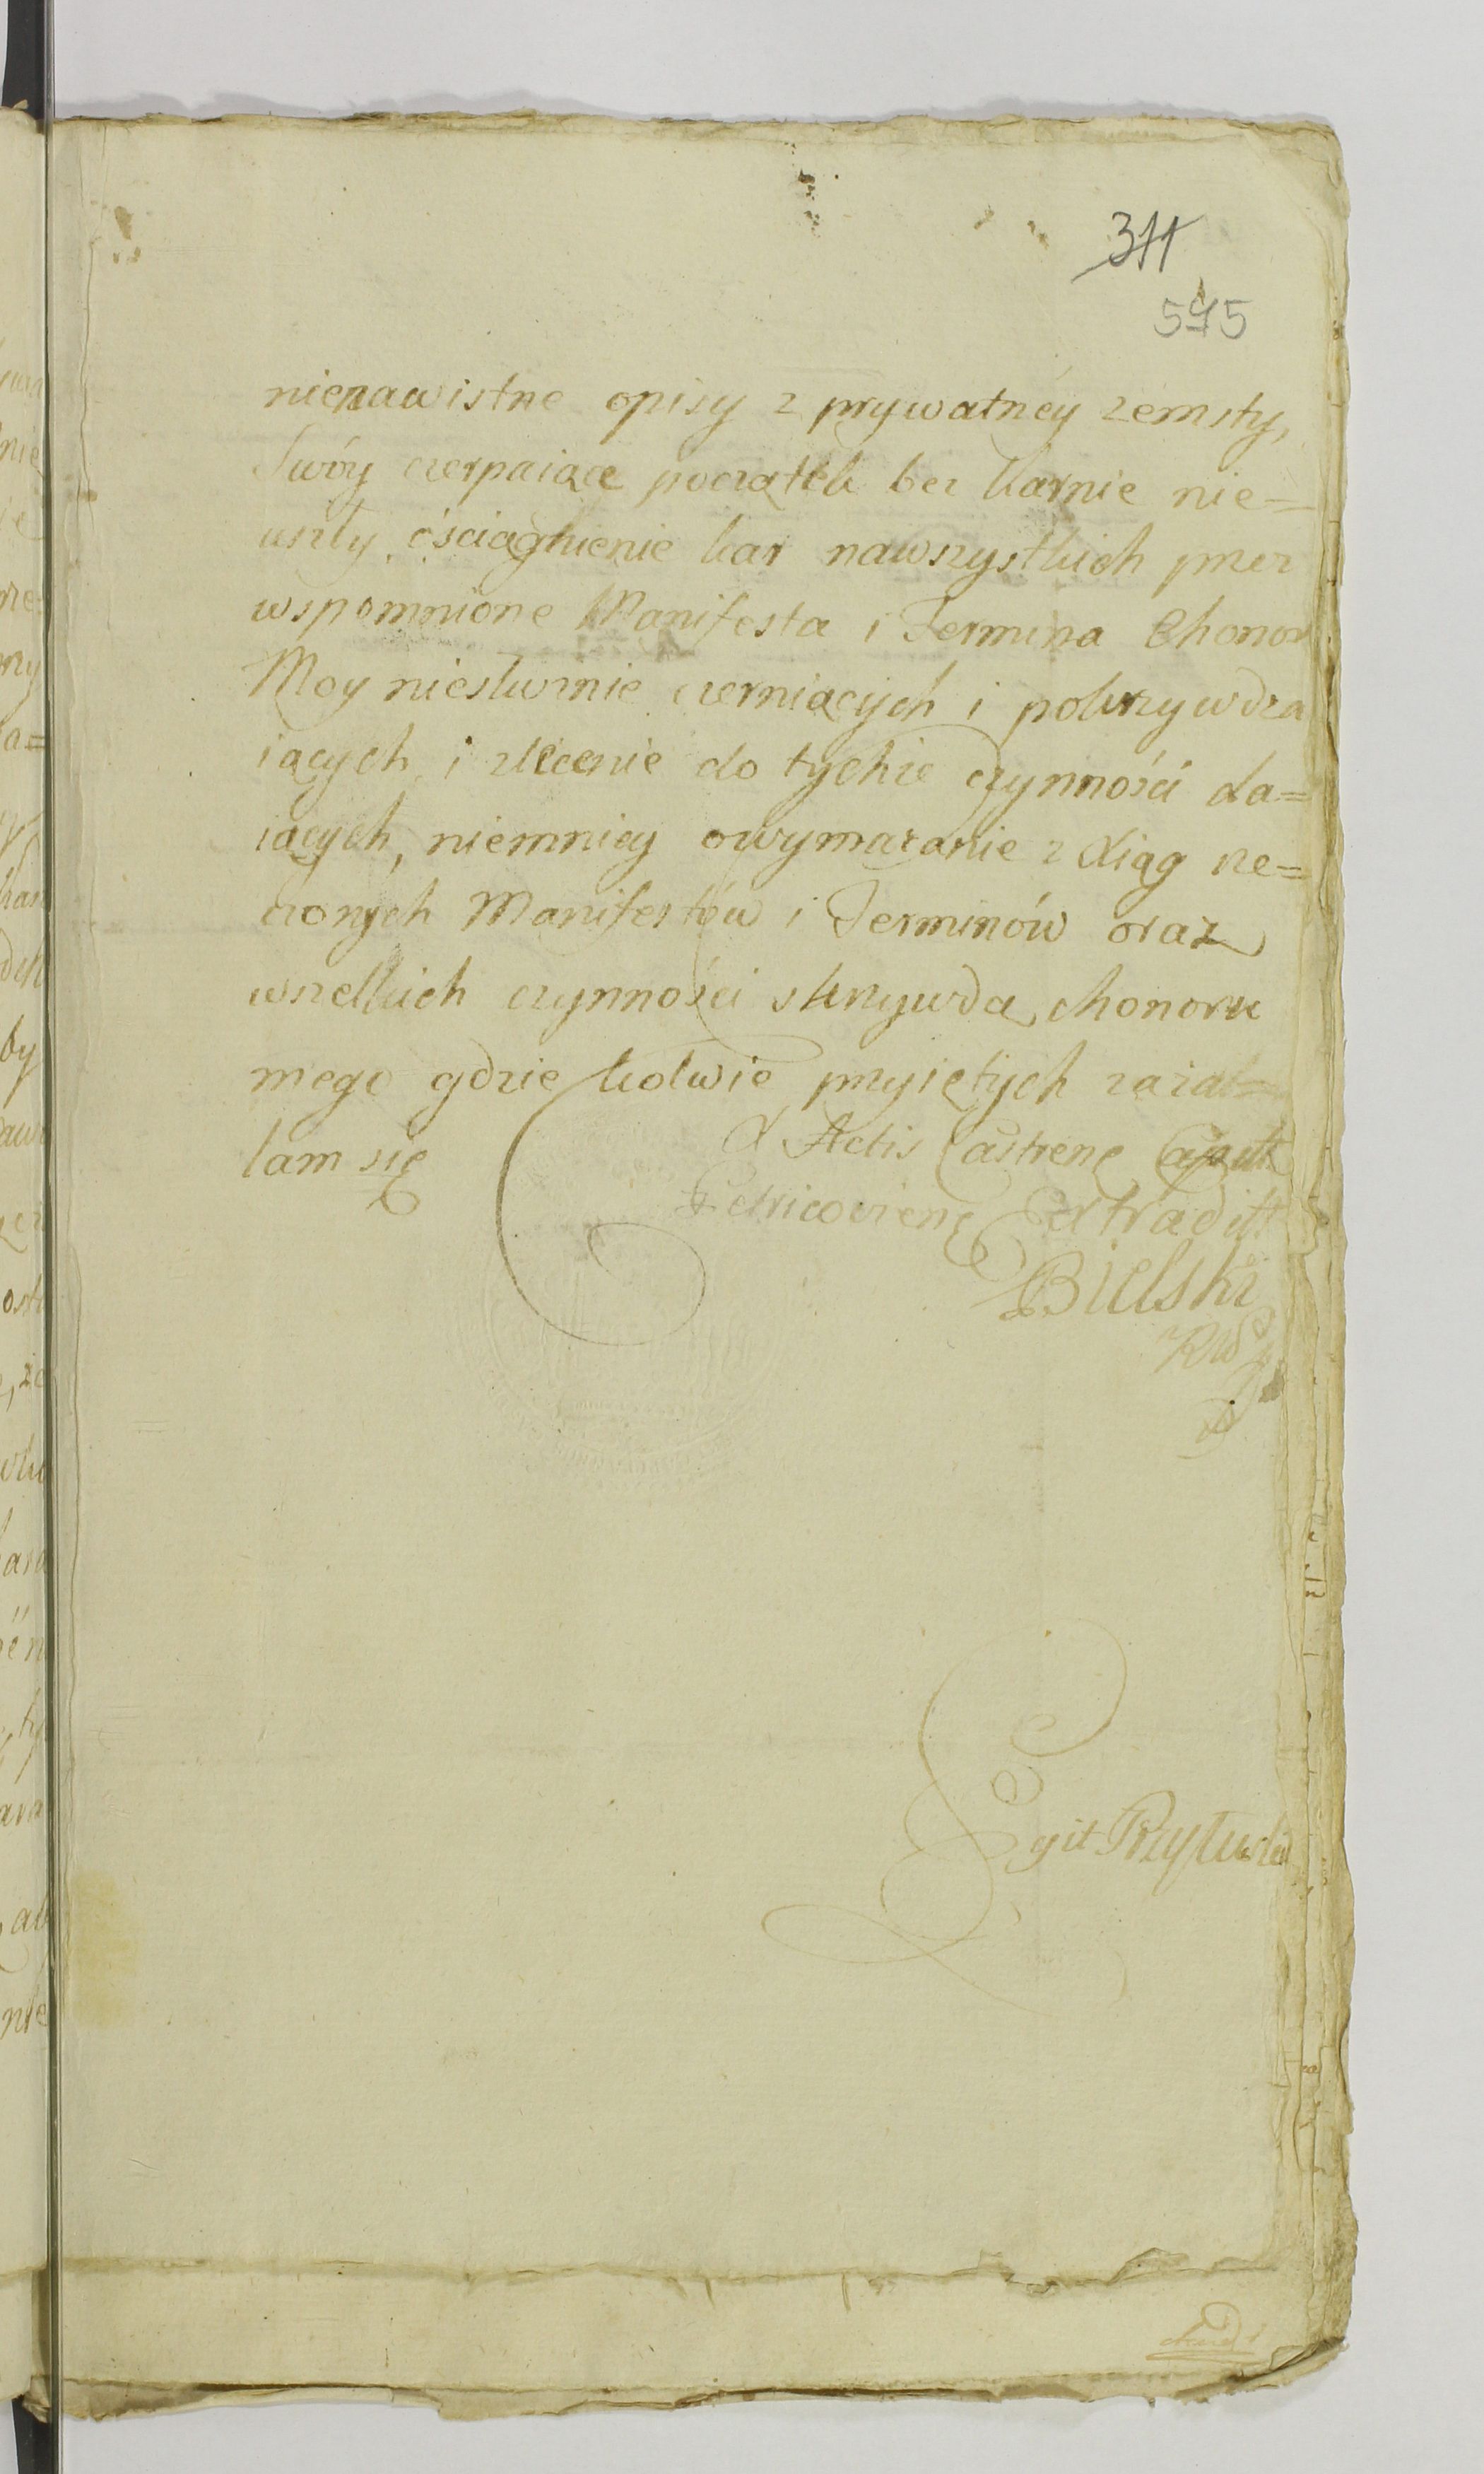 311
595
nienawistne opisy z prywatnéy zemsty,
Swóy czerpaiące początek bez karnie nie=
uszły, ościągnienie kar nawszystkich przez
wspomnione Manifesta i Termina Chonor
Moy niesłusznie czerniących i pokrzywdza
iących, i zlecenie do tychże czynności da=
iących, niemniey owymazanie z Xiąg rze=
czonych Manifestów i Terminów oraz
wszelkich czynności skrzywdą chonoru
mego gdzie kolwie przyiętych zażal=
lam się
Ex Actis Castrenę Capit
Petricovienę Extradit
Bielski
Legit Przyłuski